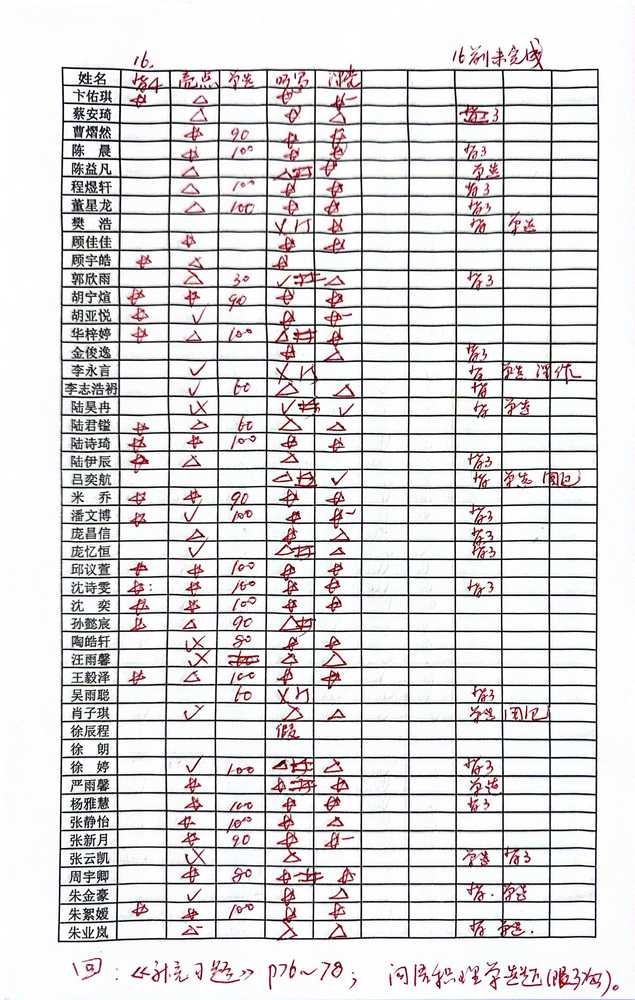 16. 16前未完成
姓名 背4 亮点 学益 听写
卞佑琪
蔡安琦 3
曹熠然 90
陈晨 100 背3
陈益凡 学益
程煜轩 100 背3
董星龙 100 背3
樊浩 背 学益
顾佳佳
顾宇皓
郭欣雨 30 背3
胡宁煊 90
胡亚悦
华梓婷 100
金俊逸 背3
李永言 背 学益 作
李志浩礽 60 背
陆昊冉 背 学益
陆君镒 60
陆诗琦 100
陆伊辰 背3
吕奕航 背 学益
米乔 90
潘文博 100 背3
庞昌信 背3
庞忆恒 背3
邱议萱 100
沈诗雯 100 背3
沈奕 100
孙懿宸 90
陶皓轩 80
汪雨馨
王毅泽 100
吴雨聪 60 背3
肖子琪 学益
徐辰程 假
徐朗
徐婷 100 背3
严雨馨 学益
杨雅慧 100 背3
张静怡 100
张新月 90
张云凯 学益 背3
周宇卿 80
朱金豪 背. 学益
朱絮媛 100
朱业岚 背 学益.
1回: 《补充习题》 P76~78;